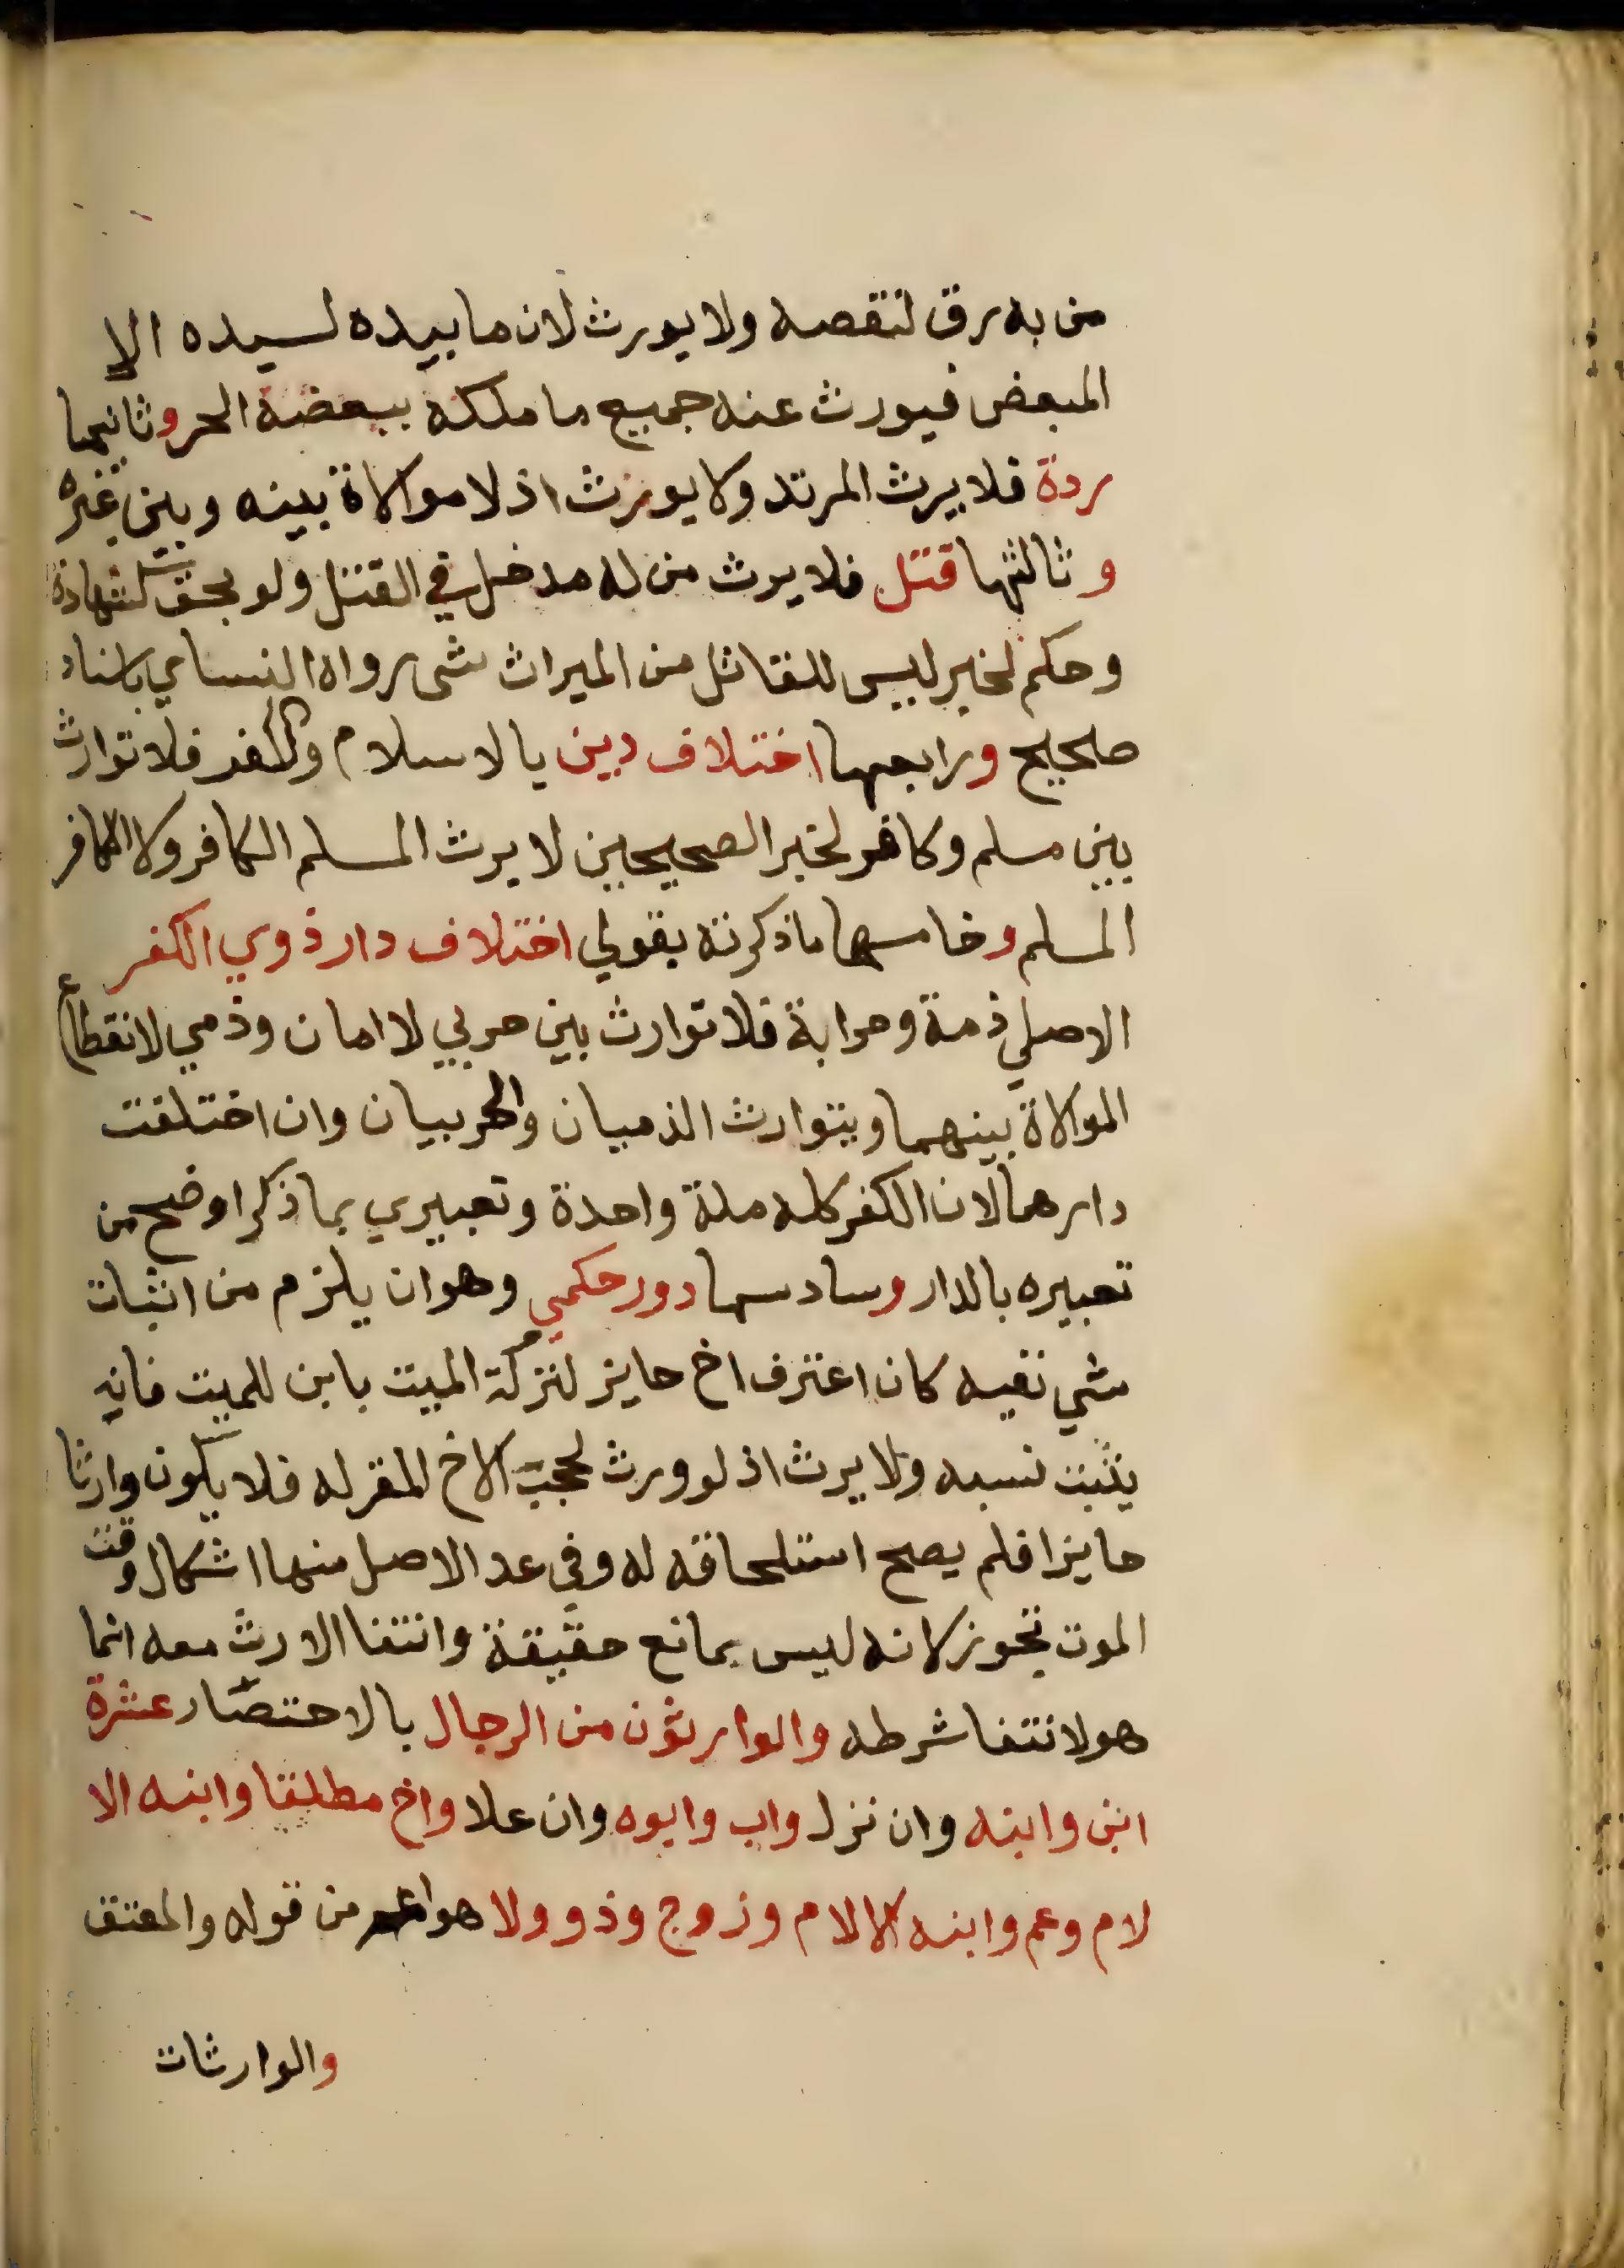 من به رق لنقصه ولا يورث لان ما بيده لسيده الا
المبعض فيورث عنه جميع ما ملكه ببعضه الحر وثانيها
ردة فلا يرث المرتد ولا يورث اذ لا موالاة بينه وبين غيره
وثالثها قتل فلا يرث من له مدخل في القتل ولو بحق كشهادة
وحكم لخبر ليس للقاتل من الميراث شي رواه النساي باسناد
صحيح ورابعها اختلاف دين بالاسلام والكفر فلا توارث
بين مسلم وكافر لخبر الصحيحين لا يرث المسلم الكافر ولا الكافر
المسلم وخامسها ما ذكرته بقولي اختلاف دار ذوي الكفر
الاصلي ذمة وحرابة فلا توارث بين حربي لا امان وذمي لانقطاع
الموالاة بينهما ويتوارث الذميان والحربيان وان اختلفت
دارهما لان الكفر كله ملة واحدة وتعبيري بما ذكر اوضح من
تعبيره بالدار وسادسها دور حكمي وهو ان يلزم من اثبات
شي نفيه كان اعترف اخ حايز لتركة الميت بابن للميت فانه
يثبت نسبه ولا يرث اذ لو ورث لحجب الاخ المقر له فلا يكون وارثا
حايزا فلم يصح استلحاقه له وفي عد الاصل منها اشكال وقت
الموت تجوز لانه ليس بمانع حقيقة وانتفا الارث معه انما
هو لانتفا شرطه والوارثون من الرجال بالاختصار عشرة
ابن وابنه وان نزل واب وابوه وان علا واخ مطلقا وابنه الا
لام وعم وابنه الا لام وزوج وذو ولا هو اعم من قوله والمعتق
والوارثات